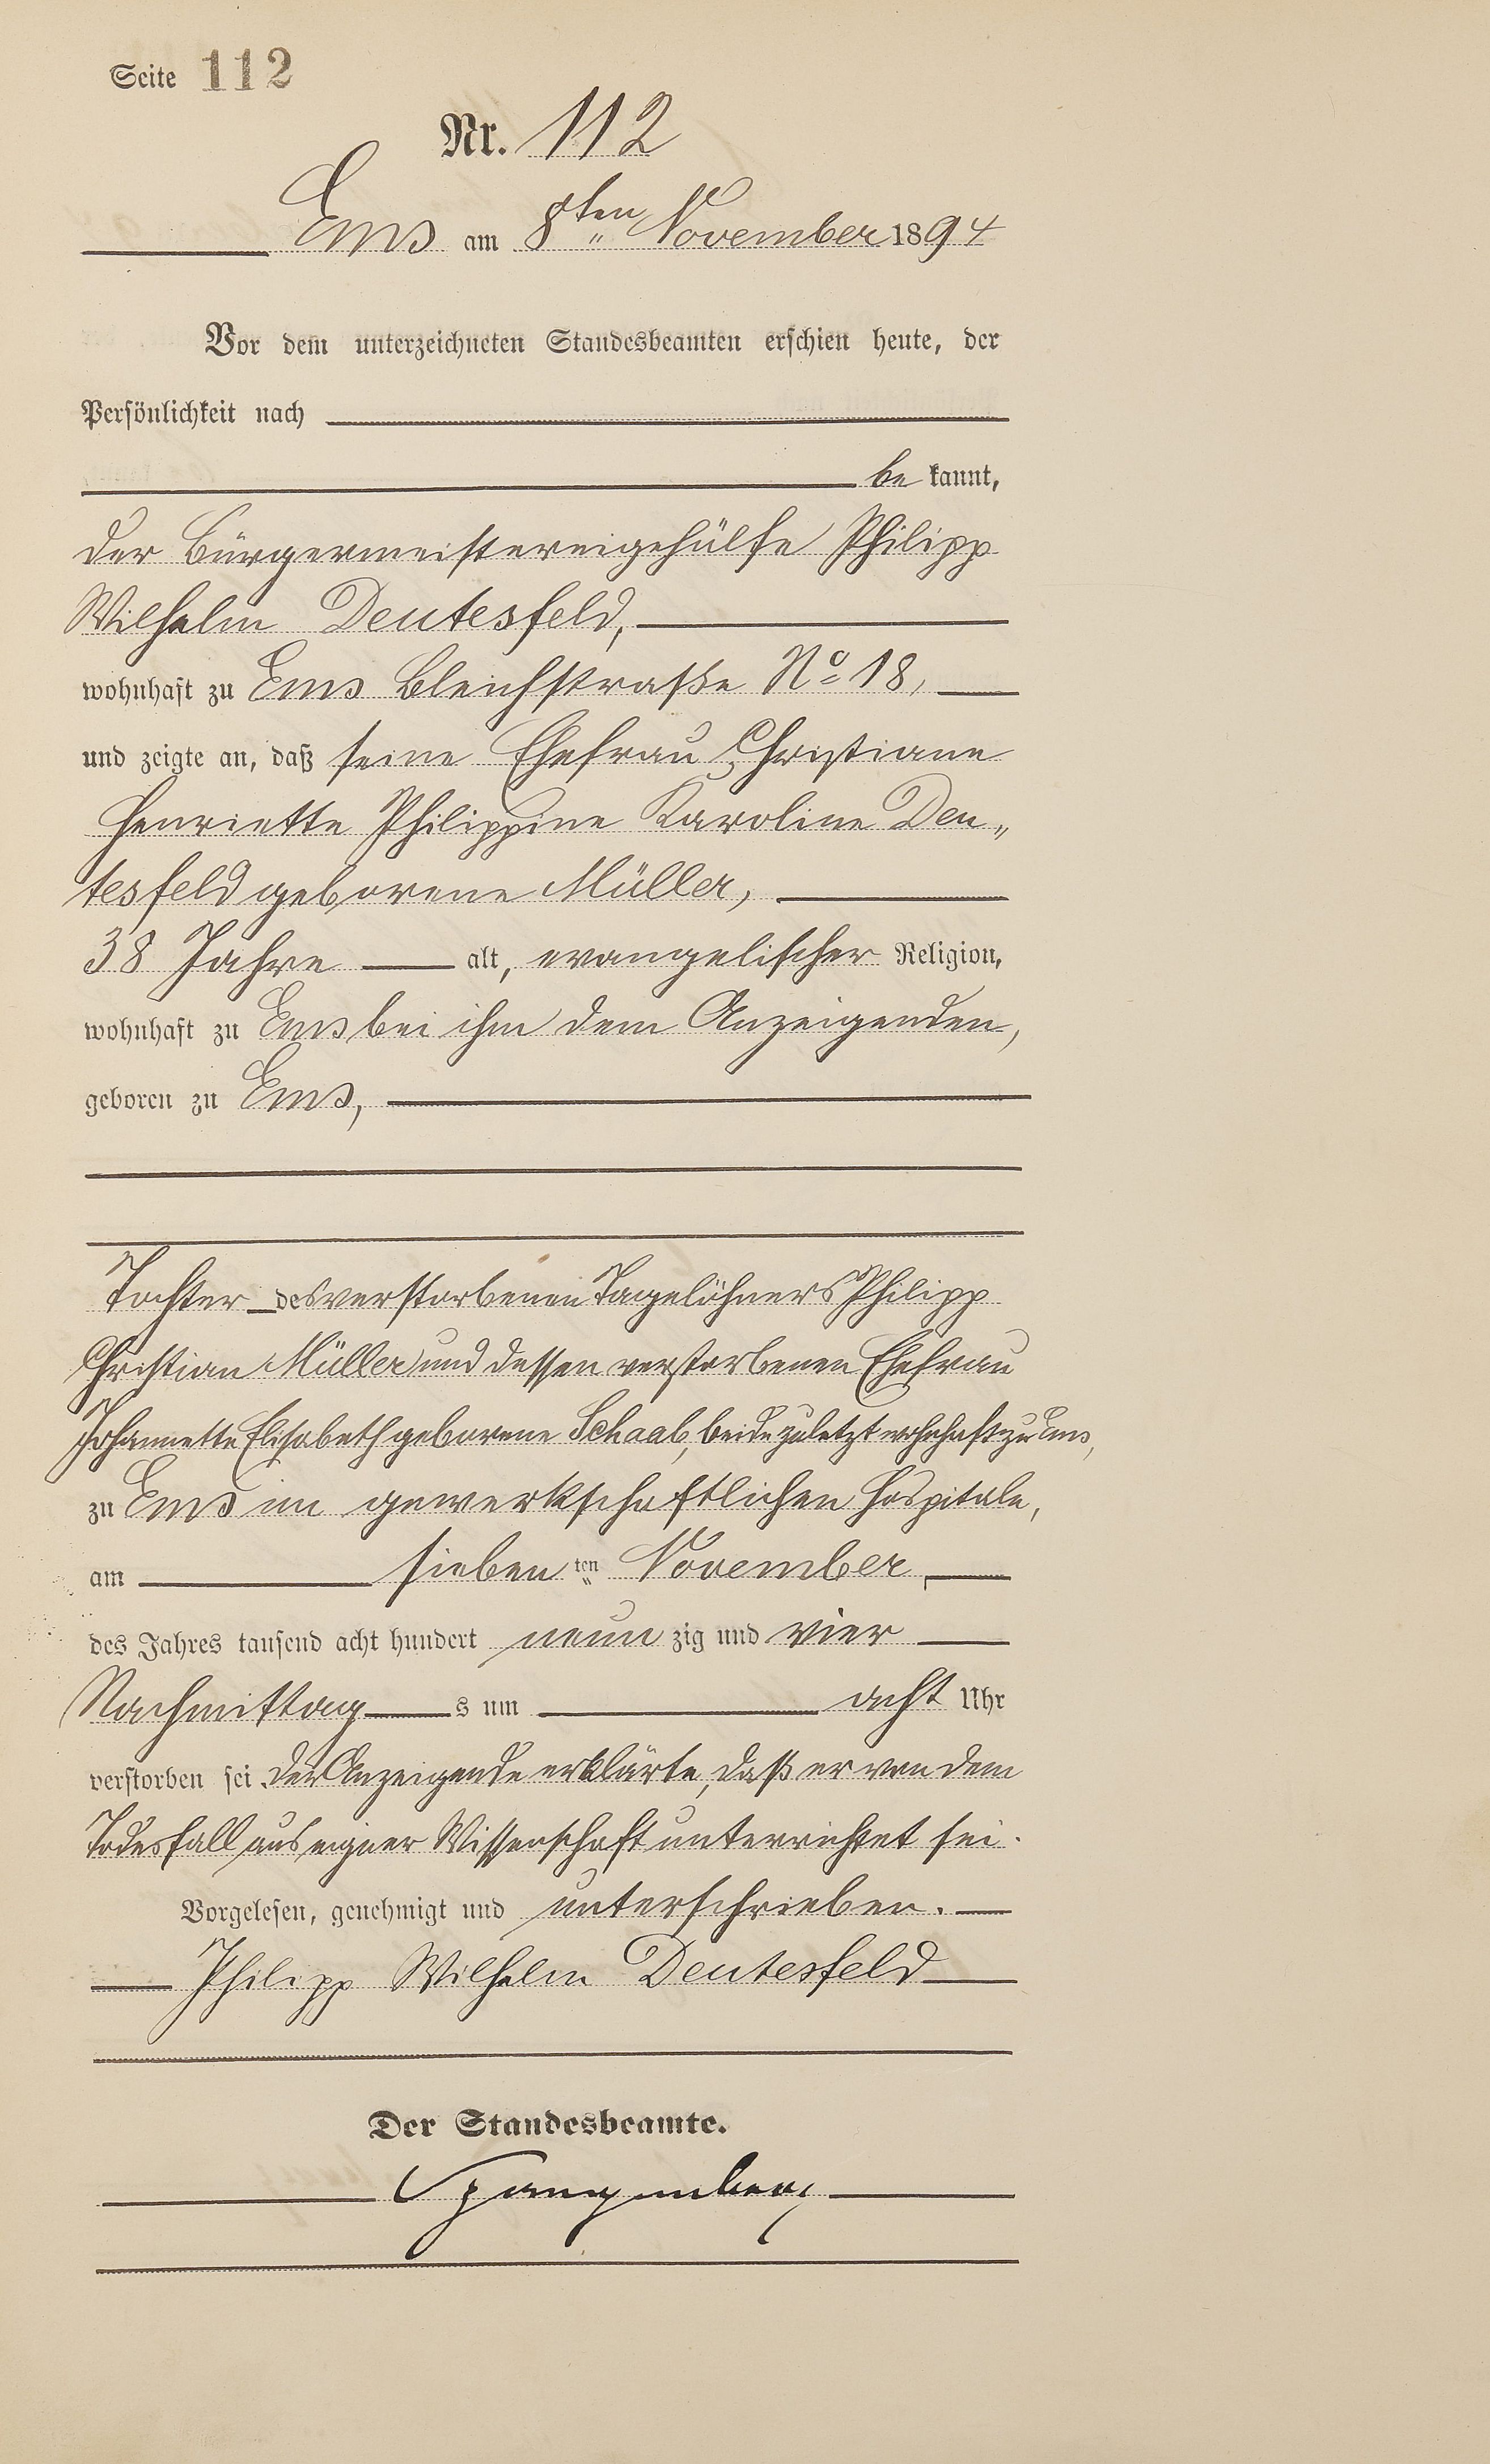 Seite 112
Nr. 112
Ems am 8ten November 1894
Vor dem unterzeichneten Standesbeamten erschien heute, der
Persönlichkeit nach
be kannt,
der Bürgermeistereigehülfe Philipp
Wilhelm Deutesfeld,
wohnhaft zu Ems Bleichstraße No 18,
und zeigte an, daß seine Ehefrau Christiane
Henriette Philippine Karoline Deu„
tesfeld geborene Müller,
38 Jahre alt, evangelischer Religion,
wohnhaft zu Ems bei ihm dem Anzeigenden,
geboren zu Ems,
Tochter des verstorbenen Tagelöhners Philipp
Christian Müller und dessen verstorbenen Ehefrau
Johannette Elisabeth geborene Schaab, beide zuletzt wohnhaft zu Ems,
zu Ems im gewerkschaftlichen Hospitale,
am sieben ten November,
des Jahres tausend acht hundert neun zig und vier
Nachmittag s um acht Uhr
verstorben sei. Der Anzeigende erklärte, daß er von dem
Todesfall aus eigner Wissenschaft unterrichtet sei.
Vorgelesen, genehmigt und unterschrieben.
Philipp Wilhelm Deutesfeld
Der Standesbeamte.
Spangenberg